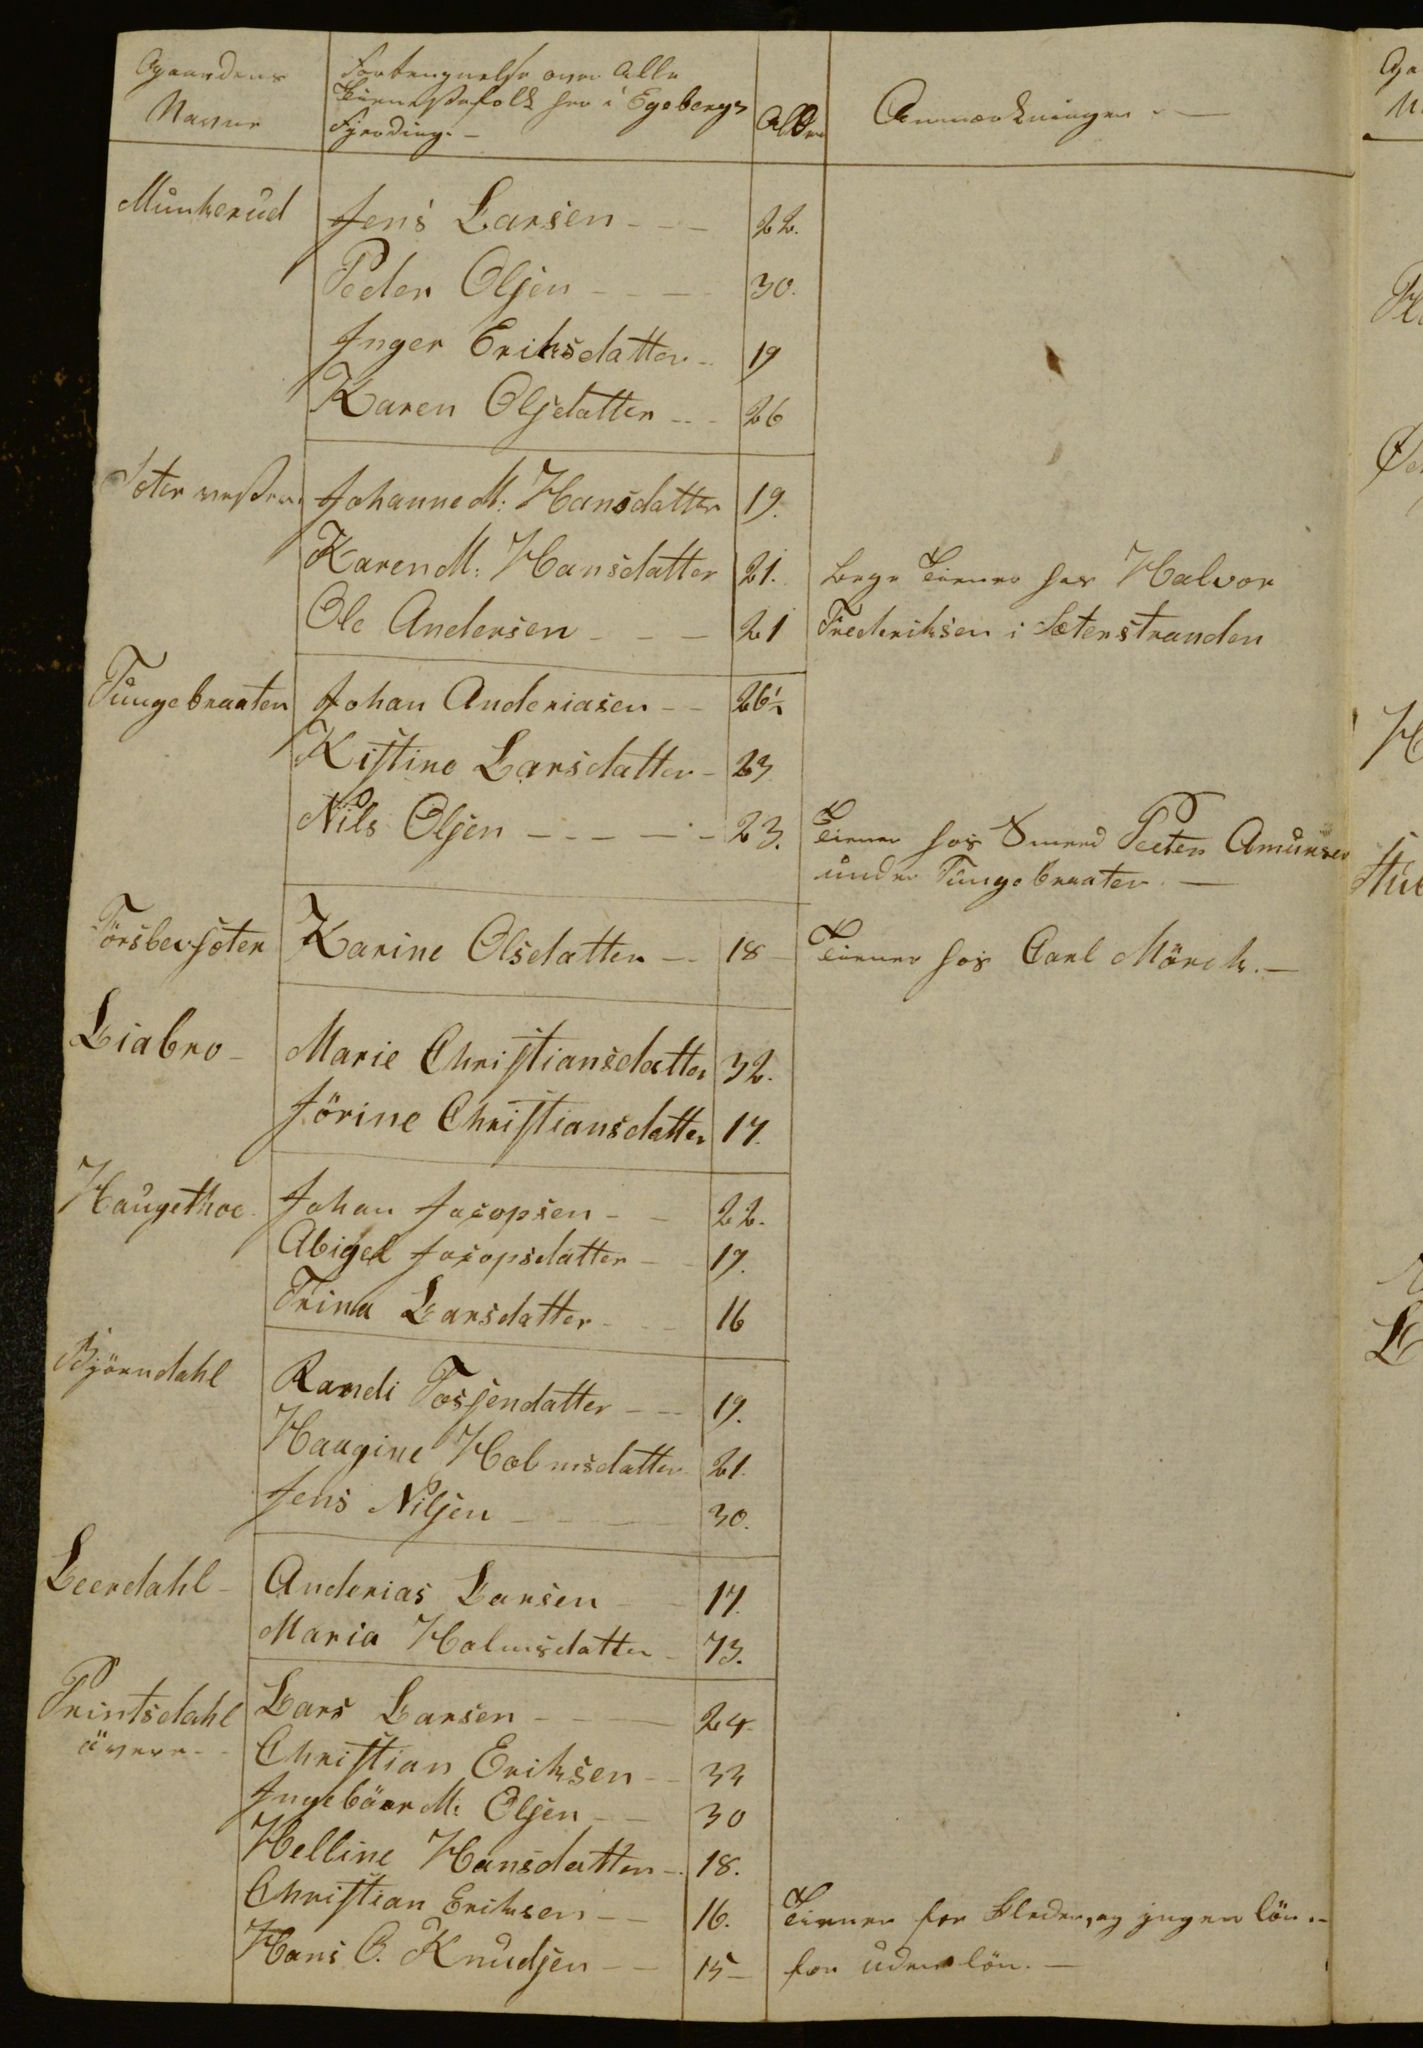 Gaardens Navne | Fortegnelse over Alle Tienestefolk her i Egebergs Fjerding.- | Alder | Anmærkninger.-
Munkerud | Jens Larsen - - - | 22.
Peder Olsen - - - | 30.
Inger Eriksdatter - | 19
Karen Olsdatter - - | 26
Sæter vestre | Johanne M: Hansdatter | 19.
Karen M: Hansdatter | 21. | begge Tiener hos Halvor
Ole Andersen - - - | 21 | Frederiksen i Sæterstranden
Tungebraaten | Johan Anderiasen - - | 26½
Kistine Larsdatter - | 23
Nils Olsen - - - - - | 23. | Tiener hos Smed Peeter Amunsen
under Tungebraaten. -
Karine Olsdatter - | 18 - | Tiener hos Carl Mörch. -
Liabro - | Marie Christiansdatter | 32.
Jörine Christiansdatter | 17.
Haugethoe | Johan Jacopsen - - | 22.
Abigel Jacopsdatter - - | 17.
Trina Larsdatter - - | 16
Björndahl | Randi Tosjendatter - - | 19.
Haagine Holmsdatter | 21.
Jens Nilsen - - - | 30.
Leerdahl - | Anderias Larsen - - | 17.
Maria Holmsdatter - | 73.
Printsdahl | Lars Larsen - - - | 24
övere - - | Christian Eriksen - - | 33
Ingebäor M: Olsen - - | 30
Helline Hansdatter - | 18.
Christian Eriksen - - | 16. | Tiener for kleder, og jngen lön. -
Hans O. Knudsen - - | 15 - | for uden lön. -